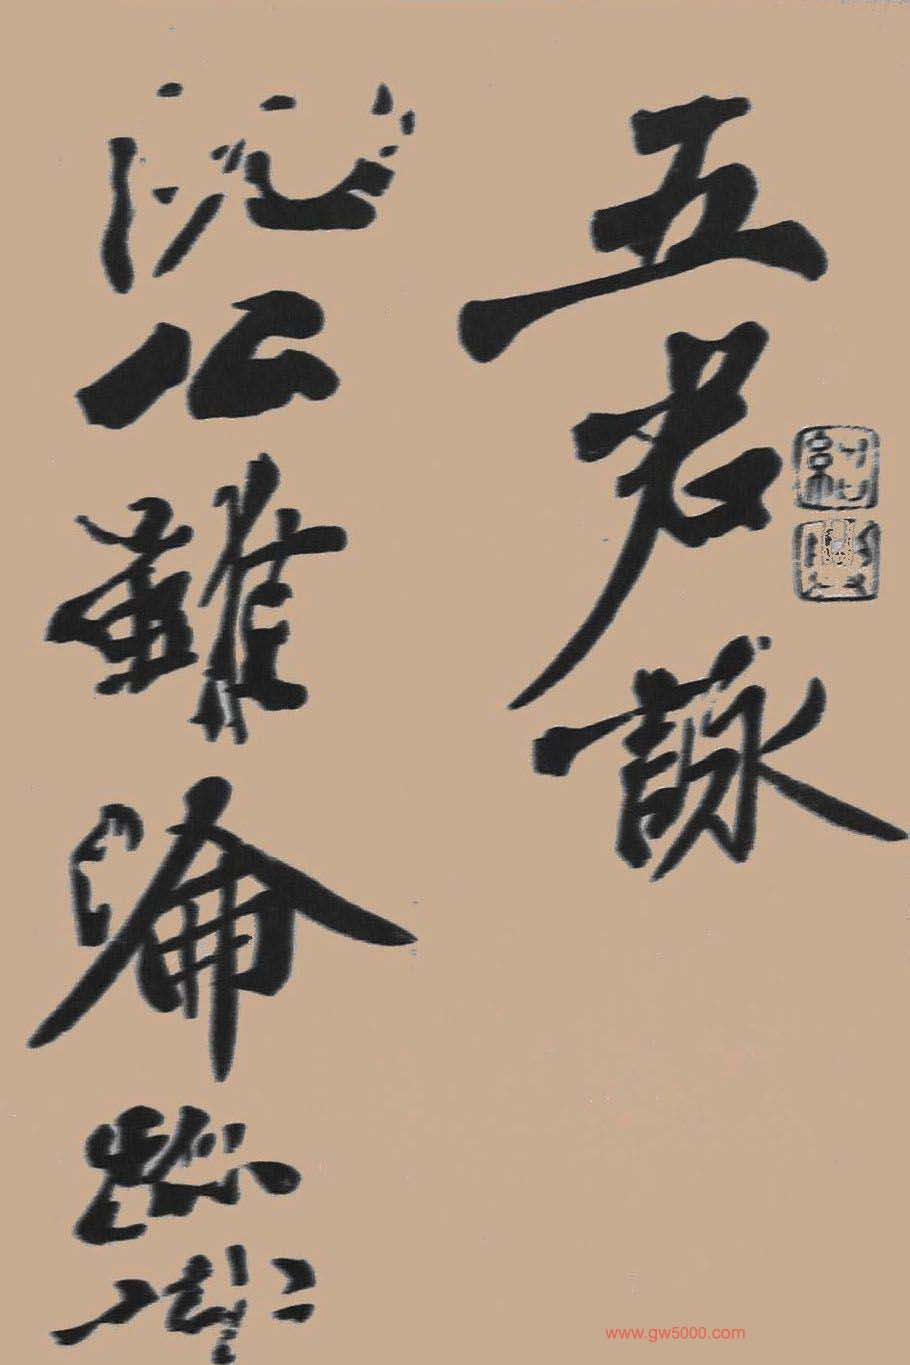 五君詠
阮公雖淪跡
www.gw5000.com